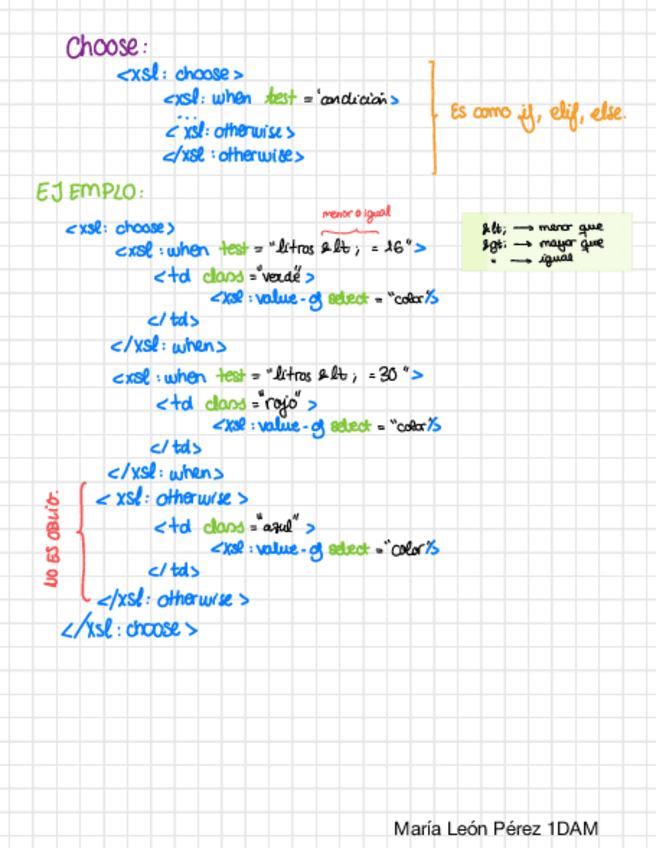 Choose:
<xsl: choose>
<xsl: when test = "condición>
...
< xsl: otherwise>
</xsl : otherwise>
Es como if, elif, else.
EJEMPLO:
menor o igual
<xsl: choose>
<xsl: when test = "litros &lt; = 16">
<td class="verde">
<xsl: value-of select = "color"/>
</td>
</xsl: when>
<xsl: when test = "litros &lt; =30">
<td class="rojo">
<xsl: value-of select = "color"/>
</td>
</xsl: when>
< xsl: otherwise >
<td class="azul">
<xsl: value-of select ="color"/>
</td>
</xsl: otherwise >
</xsl: choose >
&lt; → menor que
&gt; → mayor que
= → igual
NO ES OBLIG.
María León Pérez 1DAM